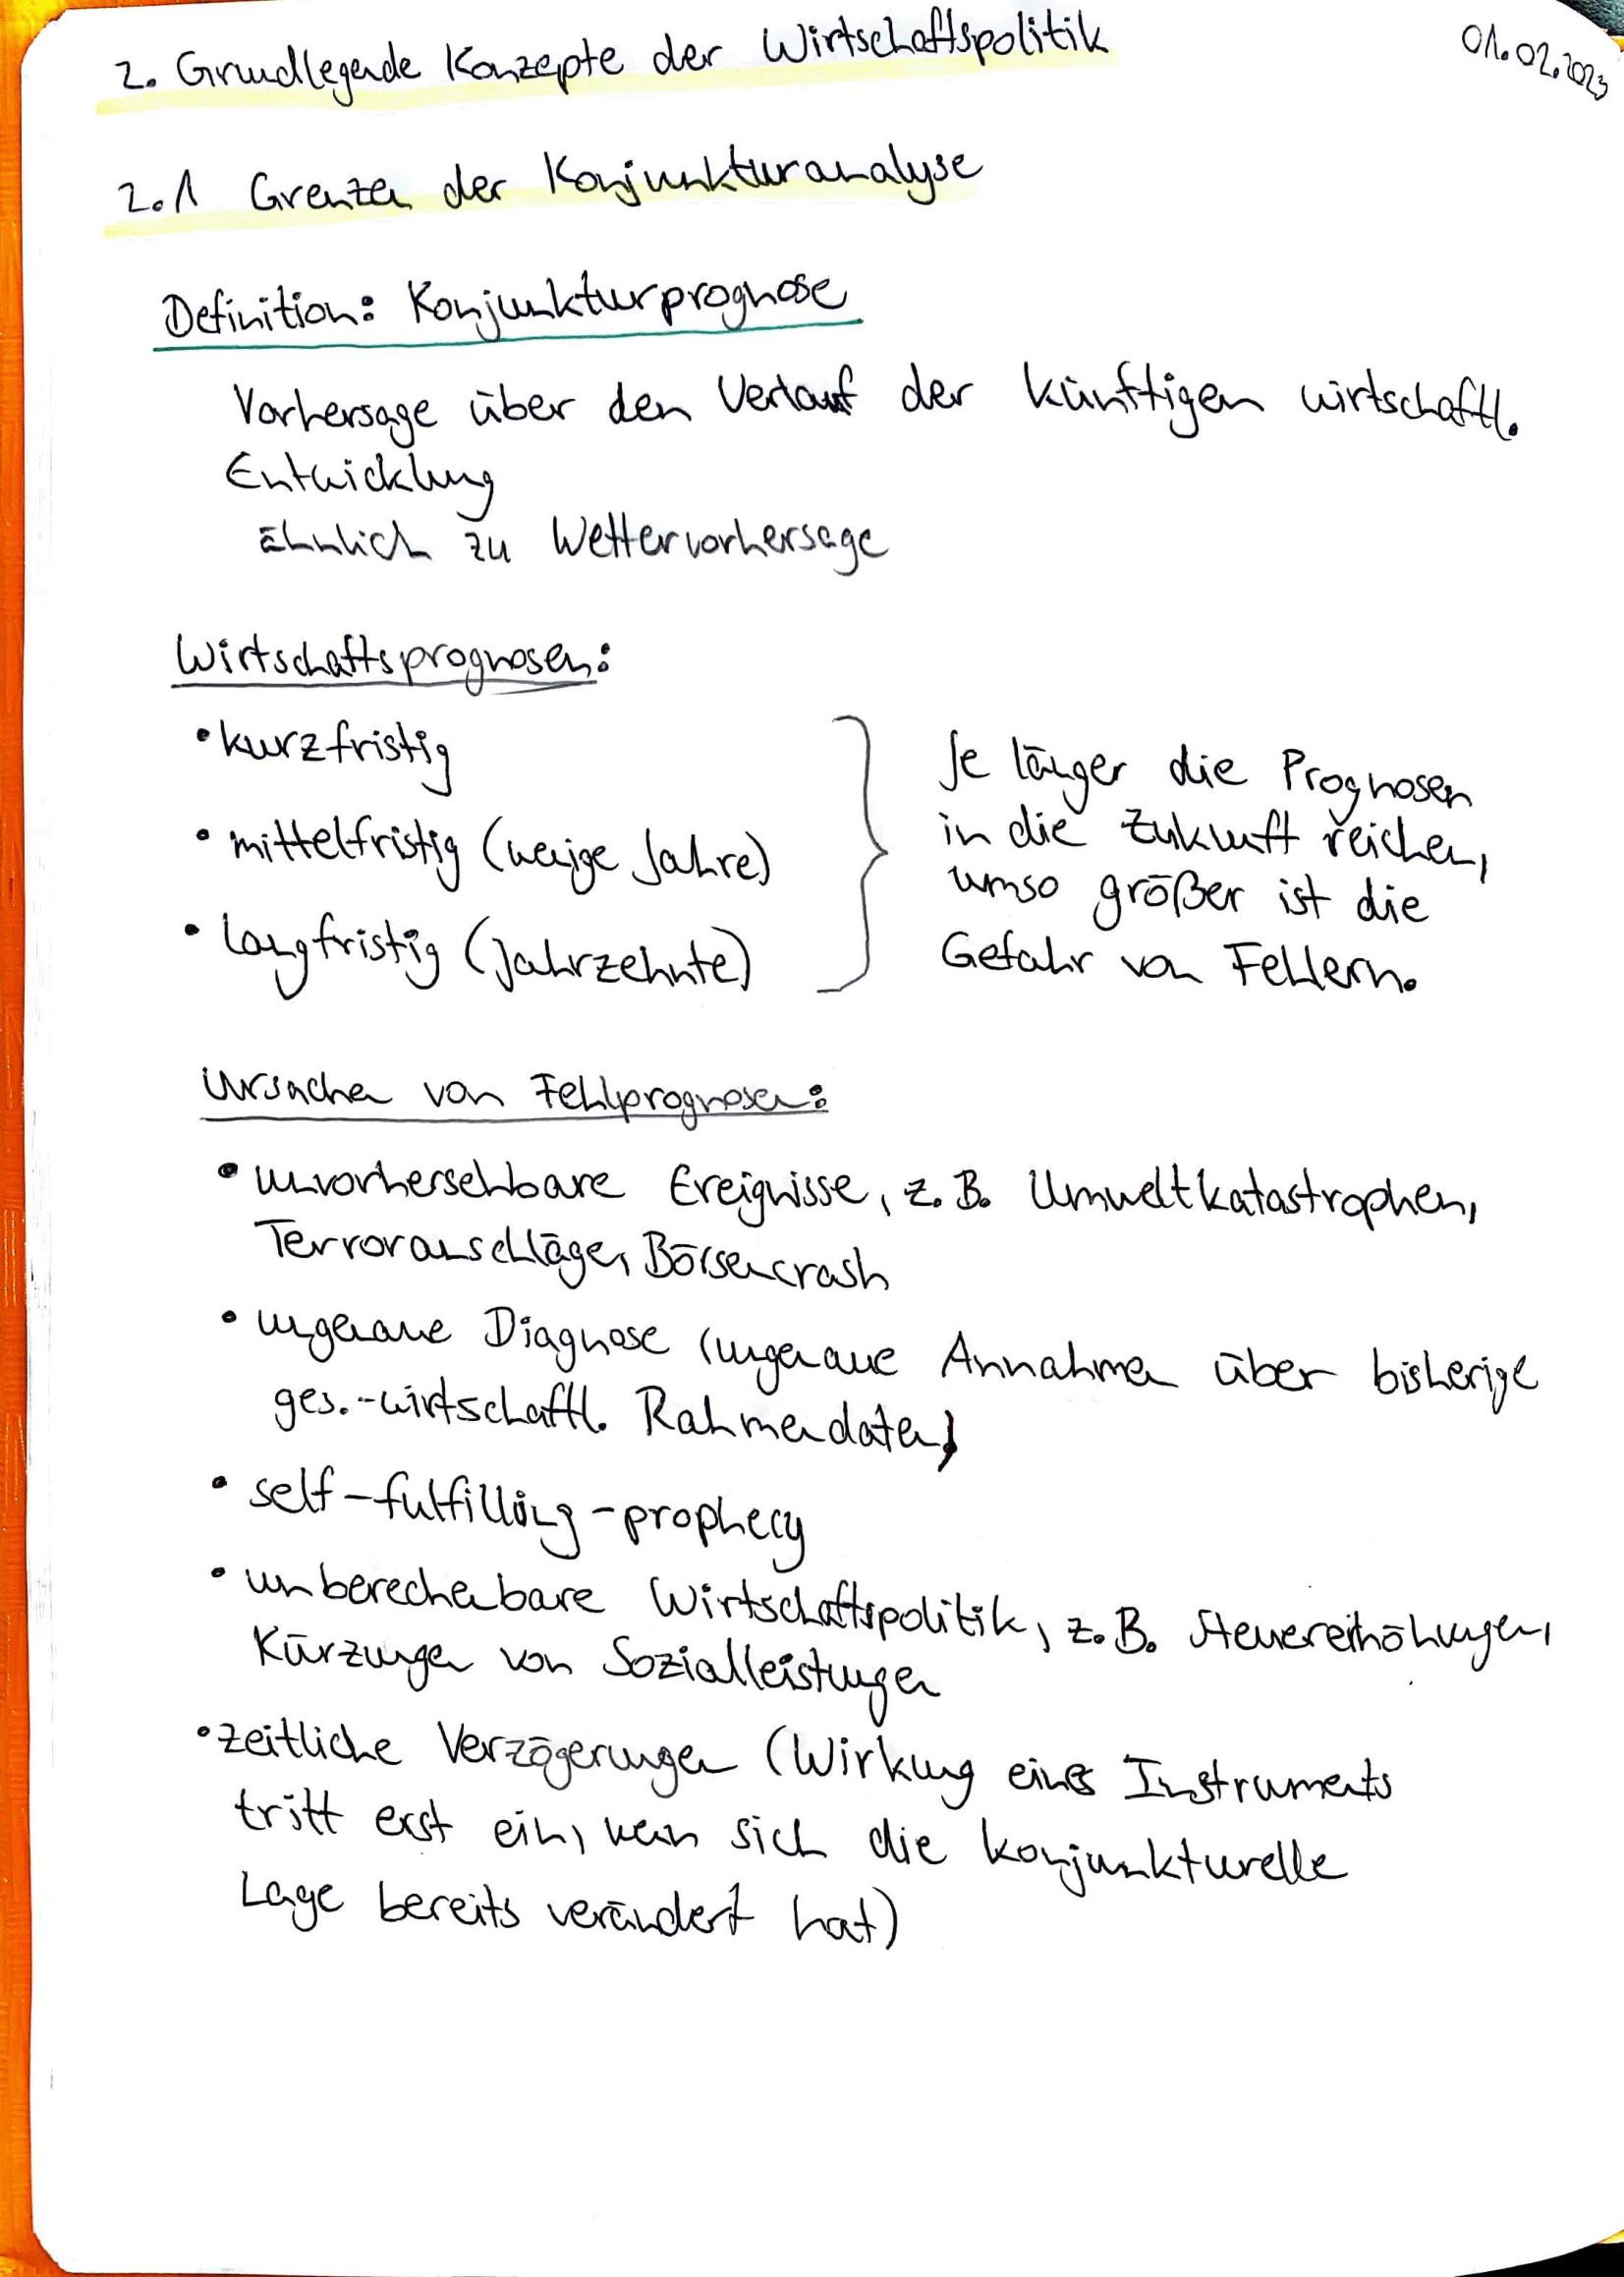 01.02.2023
2. Grundlegende Konzepte der Wirtschaftspolitik
2.1 Grenzen der Konjunkturanalyse
Definition: Konjunkturprognose
Vorhersage über den Verlauf der künftigen wirtschaftl.
Entwicklung
ähnlich zu Wettervorhersage
Wirtschaftsprognosen:
• kurzfristig
• mittelfristig (wenige Jahre)
• langfristig (Jahrzehnte)
Je länger die Prognosen
in die Zukunft reichen,
umso größer ist die
Gefahr von Fehlern.
Ursachen von Fehlprognosen:
• unvorhersehbare Ereignisse, z. B. Umweltkatastrophen,
Terroranschläge, Börsencrash
• ungenaue Diagnose (ungenaue Annahmen über bisherige
ges.-wirtschaftl. Rahmendaten)
• self-fulfilling-prophecy
• unberechenbare Wirtschaftspolitik, z. B. Steuererhöhungen,
Kürzungen von Sozialleistungen
• zeitliche Verzögerungen (Wirkung eines Instruments
tritt erst ein, wenn sich die konjunkturelle
Lage bereits verändert hat)